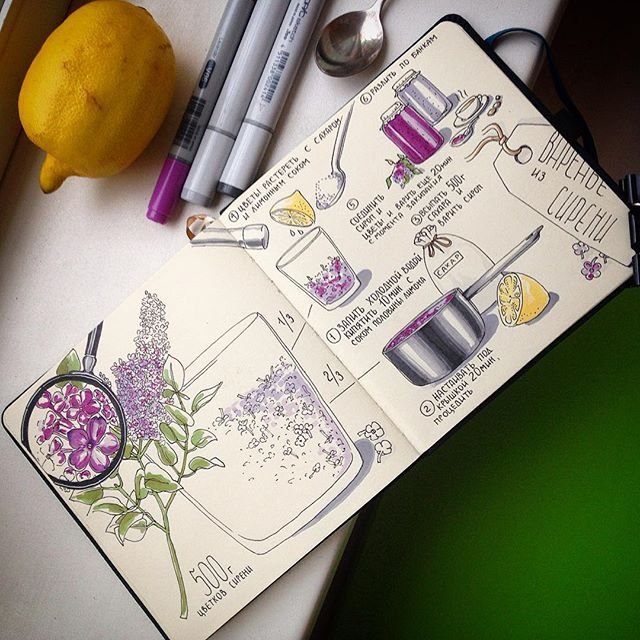 ВАРЕНЬЕ
ИЗ
СИРЕНИ
500г
ЦВЕТКОВ СИРЕНИ
1/3
2/3
① ЗАЛИТЬ ХОЛОДНОЙ ВОДОЙ
КИПЯТИТЬ 10 МИН С
СОКОМ ПОЛОВИНЫ ЛИМОНА
② НАСТАИВАТЬ ПОД
КРЫШКОЙ 20 МИН,
ПРОЦЕДИТЬ
③ ВСЫПАТЬ 500г
САХАРА
ВАРИТЬ СИРОП
САХАР
④ ЦВЕТЫ РАСТЕРЕТЬ С САХАРОМ
И ЛИМОННЫМ СОКОМ
⑤ СОЕДИНИТЬ
СИРОП И
ЦВЕТЫ И ВАРИТЬ ЕЩЕ 20 МИН
С МОМЕНТА ЗАКИПАНИЯ
⑥ РАЗЛИТЬ ПО БАНКАМ